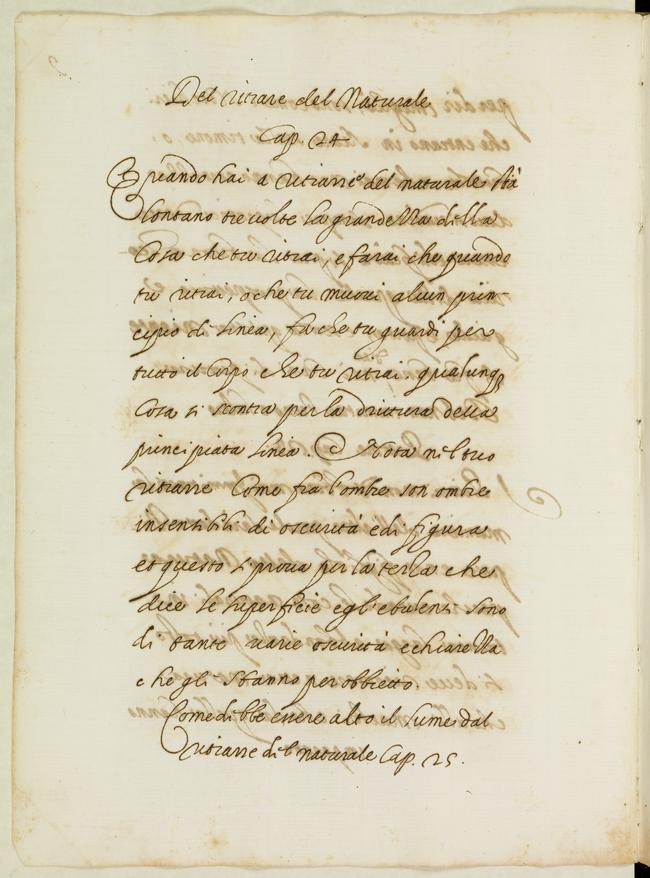 Del ritrare del Naturale
Cap. 24
Quando hai a ritrarre del naturale stà
lontano tre volte la grandezza della
Cosa che tu ritrai, e farai che quando
tu ritrai, o che tu muovi alcun prin-
cipio di linea, fa che tu guardi per
tutto il Corpo che tu ritrai. qualunq
Cosa si scontra per la drittura della
principiata linea. Nota nel tuo
ritrarre Come fra l'ombre son ombre
insensibili di oscurità e di figura
et questo si prova per la terza che
dice le superficie
di tante varie oscurità e chiarezza
che gli stanno per obbietto.
Come debbe essere alto il lume dal
ritrarre del naturale Cap. 25.